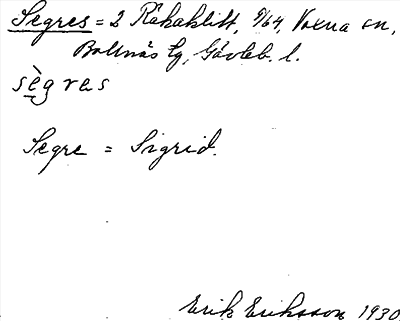 Segres = 2 Råhaklitt, 9/64, Voxna sn,
Bollnäs tg, Gävleb. l.
sègres
Segre = Sigrid.
Erik Eriksson 1930